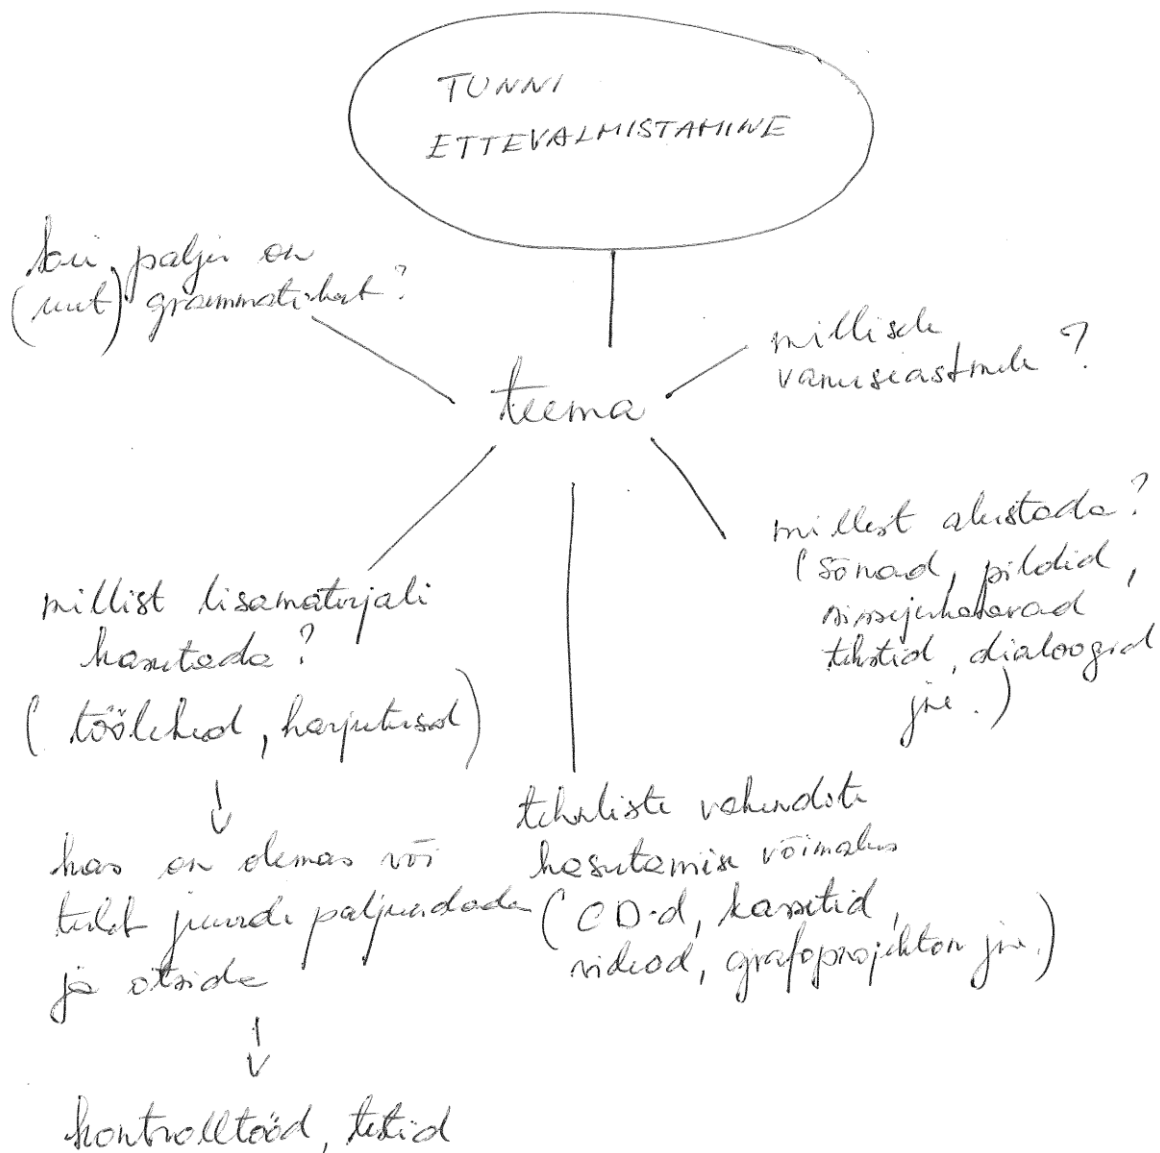 TUNNI
ETTEVALMISTAMINE
kui palju on
(uut) grammatikat?
millisele
vanuseastmele?
teema
millest alustada?
(sõnad, pildid,
sissejuhatavad
tekstid, dialoogid
jne.)
millist lisamaterjali
kasutada?
(töölehed, harjutused)
kas on olemas või
tuleb juurde paljundada
ja otsida
kontrolltööd, testid
tehniliste vahendite
kasutamise võimalus
(CD-d, kassetid,
videod, grafoprojektor jne.)